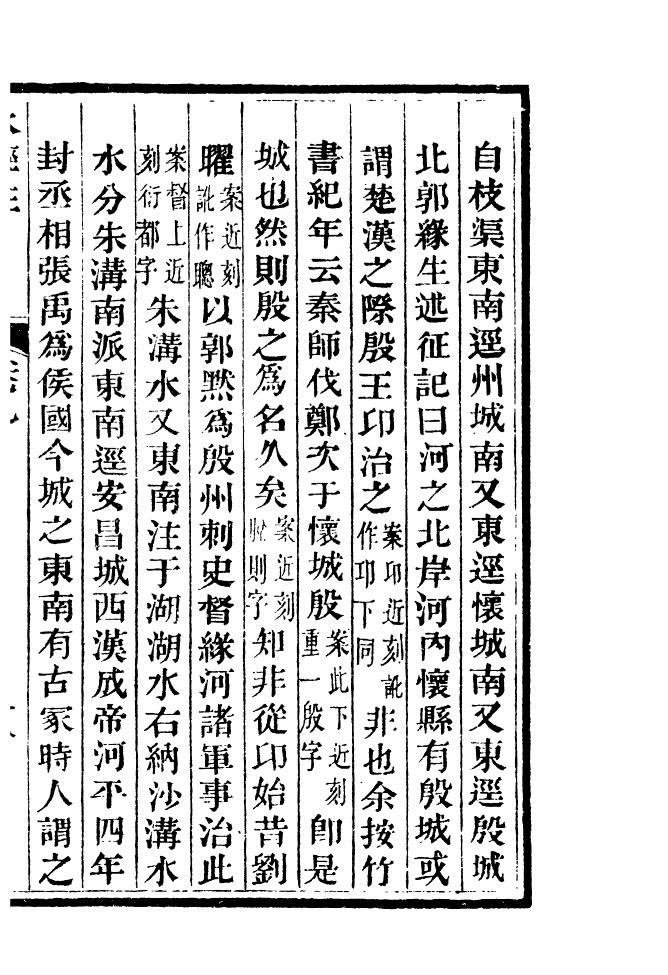 自枝渠東南逕州城南又東逕懷城南又東逕殷城
北郭緣生述征記曰河之北岸河內懷縣有殷城或
謂楚漢之際殷王卬治之案卬近刻訛作卭下同非也余按竹
書紀年云秦師伐鄭次于懷城殷案此下近刻重一殷字卽是
城也然則殷之爲名久矣案近刻脫則字知非從卬始昔劉
曜案近刻訛作聰以郭默爲殷州刺史督緣河諸軍事治此
案督上近刻衍都字朱溝水又東南注于湖湖水右納沙溝水
水分朱溝南派東南逕安昌城西漢成帝河平四年
封丞相張禹爲侯國今城之東南有古冢時人謂之